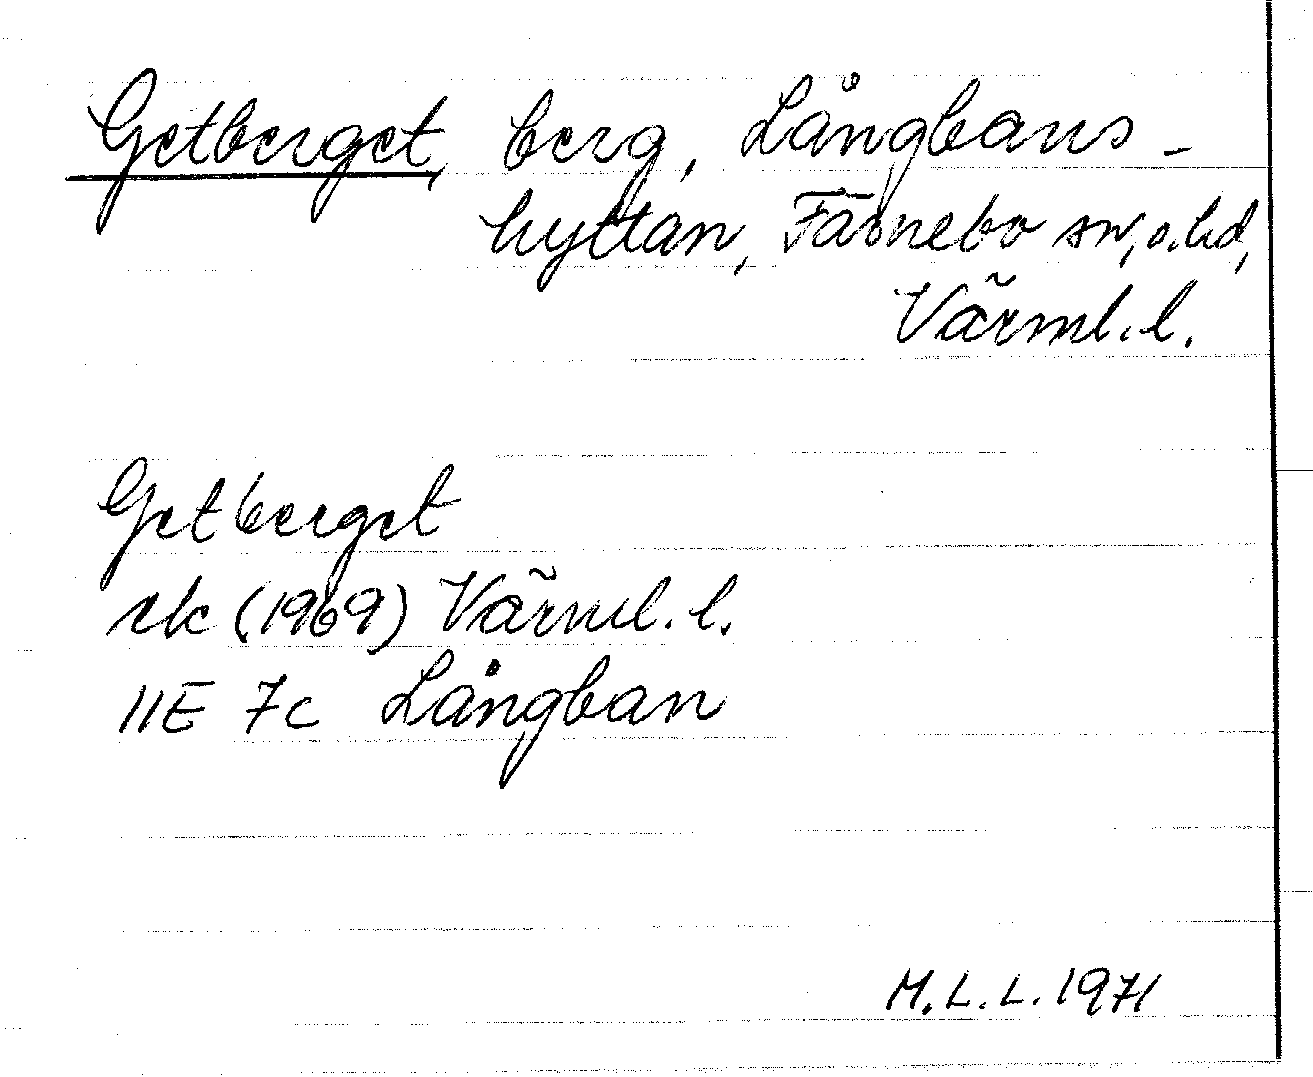 Getberget, berg, Långbans-
hyttan, Färnebo sn, o. hd,
Värml. l.
Getberget
rk (1969) Värml. l.
11E 7c Långban
M. L. L. 1971